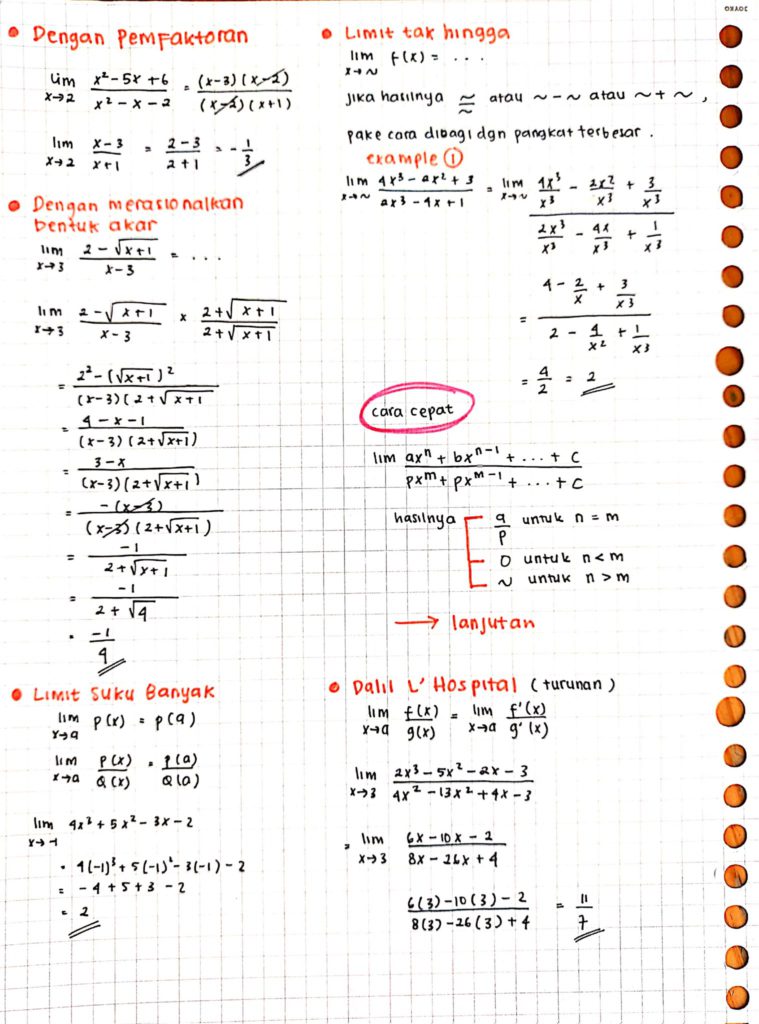 JOYKO
• Dengan Pemfaktoran
lim x→2 (x² - 5x + 6)/(x² - x - 2) = (x-3)(x-2)/(x-2)(x+1)
lim x→2 (x-3)/(x+1) = (2-3)/(2+1) = -1/3
• Dengan merasionalkan
bentuk akar
lim x→3 (2 - √(x+1))/(x-3) = ...
lim x→3 (2 - √(x+1))/(x-3) × (2 + √(x+1))/(2 + √(x+1))
= (2² - (√(x+1))²)/((x-3)(2 + √(x+1)
= (4 - x - 1)/((x-3)(2 + √(x+1))
= (3 - x)/((x-3)(2 + √(x+1))
= -(x-3)/((x-3)(2 + √(x+1))
= -1/(2 + √(x+1))
= -1/(2 + √4)
= -1/4
• Limit Suku Banyak
lim x→a P(x) = P(a)
lim x→a P(x)/Q(x) = P(a)/Q(a)
lim x→-1 4x³ + 5x² - 3x - 2
= 4(-1)³ + 5(-1)² - 3(-1) - 2
= -4 + 5 + 3 - 2
= 2
• Limit tak hingga
lim x→~ f(x) = ...
Jika hasilnya ~/~ atau ~ - ~ atau ~ + ~,
pake cara dibagi dgn pangkat terbesar.
example ①
lim x→~ (4x³ - 2x² + 3)/(2x³ - 4x + 1) = lim x→~ (4x³/x³ - 2x²/x³ + 3/x³)/(2x³/x³ - 4x/x³ + 1/x³)
= (4 - 2/x + 3/x³)/(2 - 4/x² + 1/x³)
= 4/2 = 2
cara cepat
lim (axⁿ + bxⁿ⁻¹ + ... + c)/(pxᵐ + pxᵐ⁻¹ + ... + c)
hasilnya a/p untuk n = m
0 untuk n < m
~ untuk n > m
→ lanjutan
• Dalil L' Hospital (turunan)
lim x→a f(x)/g(x) = lim x→a f'(x)/g'(x)
lim x→3 (2x³ - 5x² - 2x - 3)/(4x² - 13x² + 4x - 3)
= lim x→3 (6x - 10x - 2)/(8x - 26x + 4)
(6(3) - 10(3) - 2)/(8(3) - 26(3) + 4) = 11/7